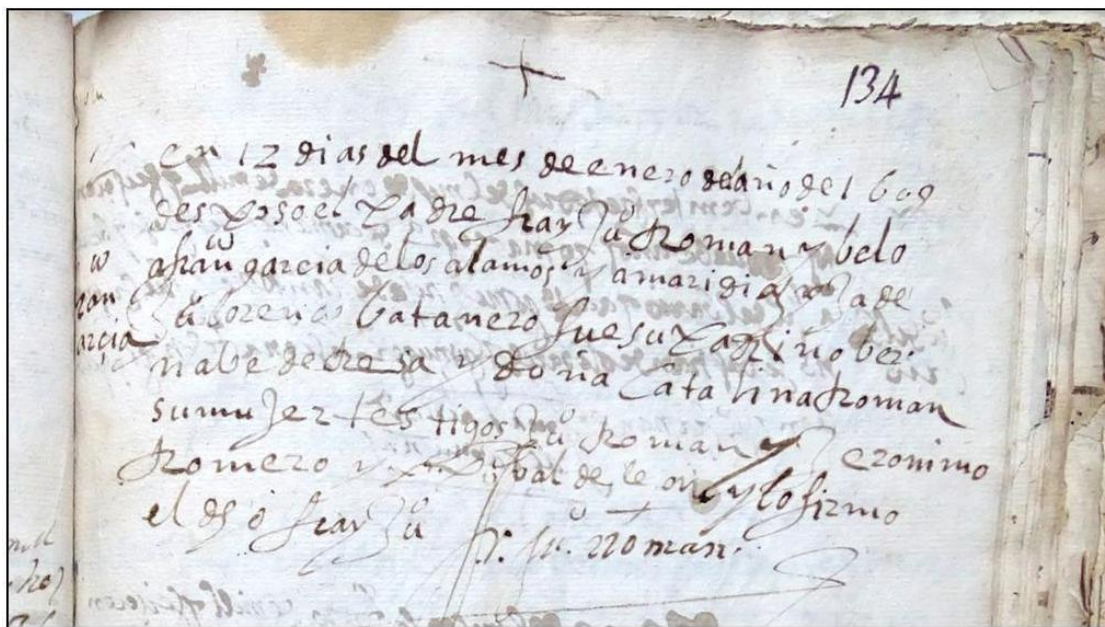 134
en 12 dias del mes de enero del año de 1609
desposo el padre fray Ju° Roman y belo
a fran^co garcia de los alamos y a maria diaz hija de
Ju° lorenço batanero fue su padrino ber
nabe de tresa y doña Catalina Roman
su mujer testigos Ju° Roman y Jeronimo
Romero y xp̄obal de leon y lo firmo
el dho fray Ju°
fr. Ju° Roman